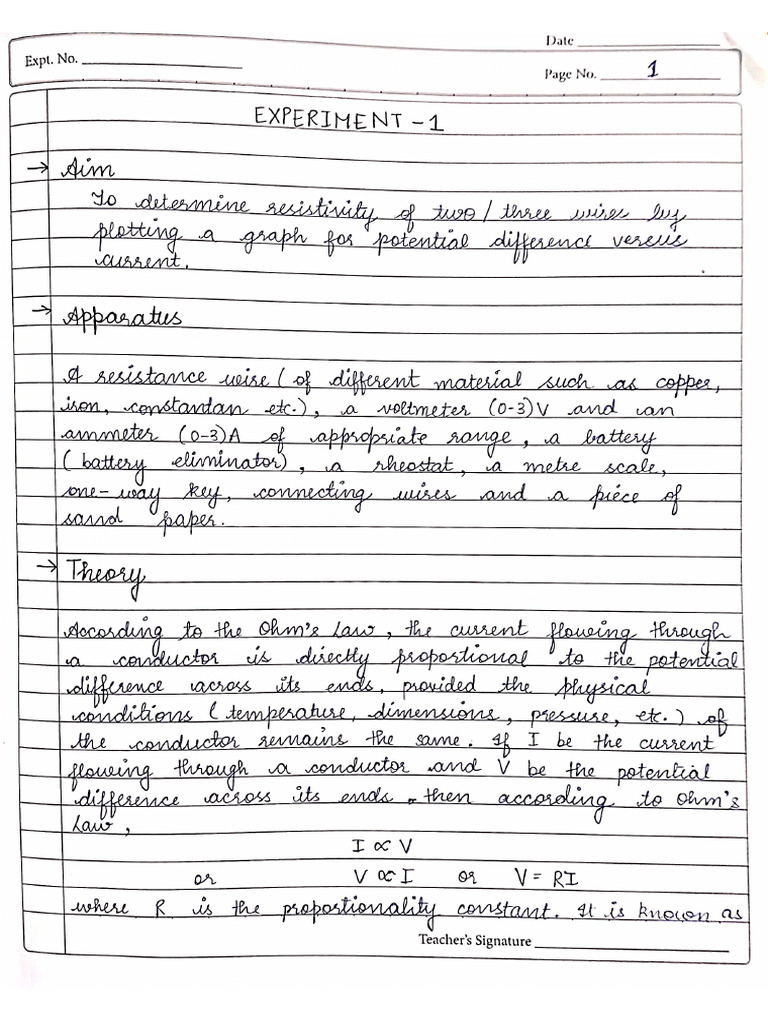 Date
Expt. No.
Page No. 1
EXPERIMENT - 1
→ Aim
To determine resistivity of two / three wires by
plotting a graph for potential difference versus
current.
→ Apparatus
A resistance wire ( of different material such as copper,
iron, constantan etc.), a voltmeter (0-3)V and an
ammeter (0-3)A of appropriate range, a battery
( battery eliminator), a rheostat, a metre scale,
one-way key, connecting wires and a piece of
sand paper.
→ Theory
According to the Ohm's Law, the current flowing through
a conductor is directly proportional to the potential
difference across its ends, provided the physical
conditions ( temperature, dimensions, pressure, etc.) of
the conductor remains the same. If I be the current
flowing through a conductor and V be the potential
difference across its ends, then according to Ohm's
Law,
I ∝ V
or V ∝ I or V = RI
where R is the proportionality constant. It is known as
Teacher's Signature